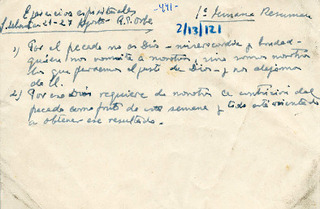 Ejercicios espirituales -441- 1ª semana Resumen
21-27 Agosto - R.P. Orbe 2/13/121
1) Por el pecado no es Dios - misericordia y bondad -
quien nos a nosotros, sino somos nosotros
los que perdemos el gusto de Dios - y nos alejamos
de El.
2) Por eso Dios requiere de nosotros la contrición del
pecado como fruto de esta semana y todo está orientado
a obtener ese resultado.